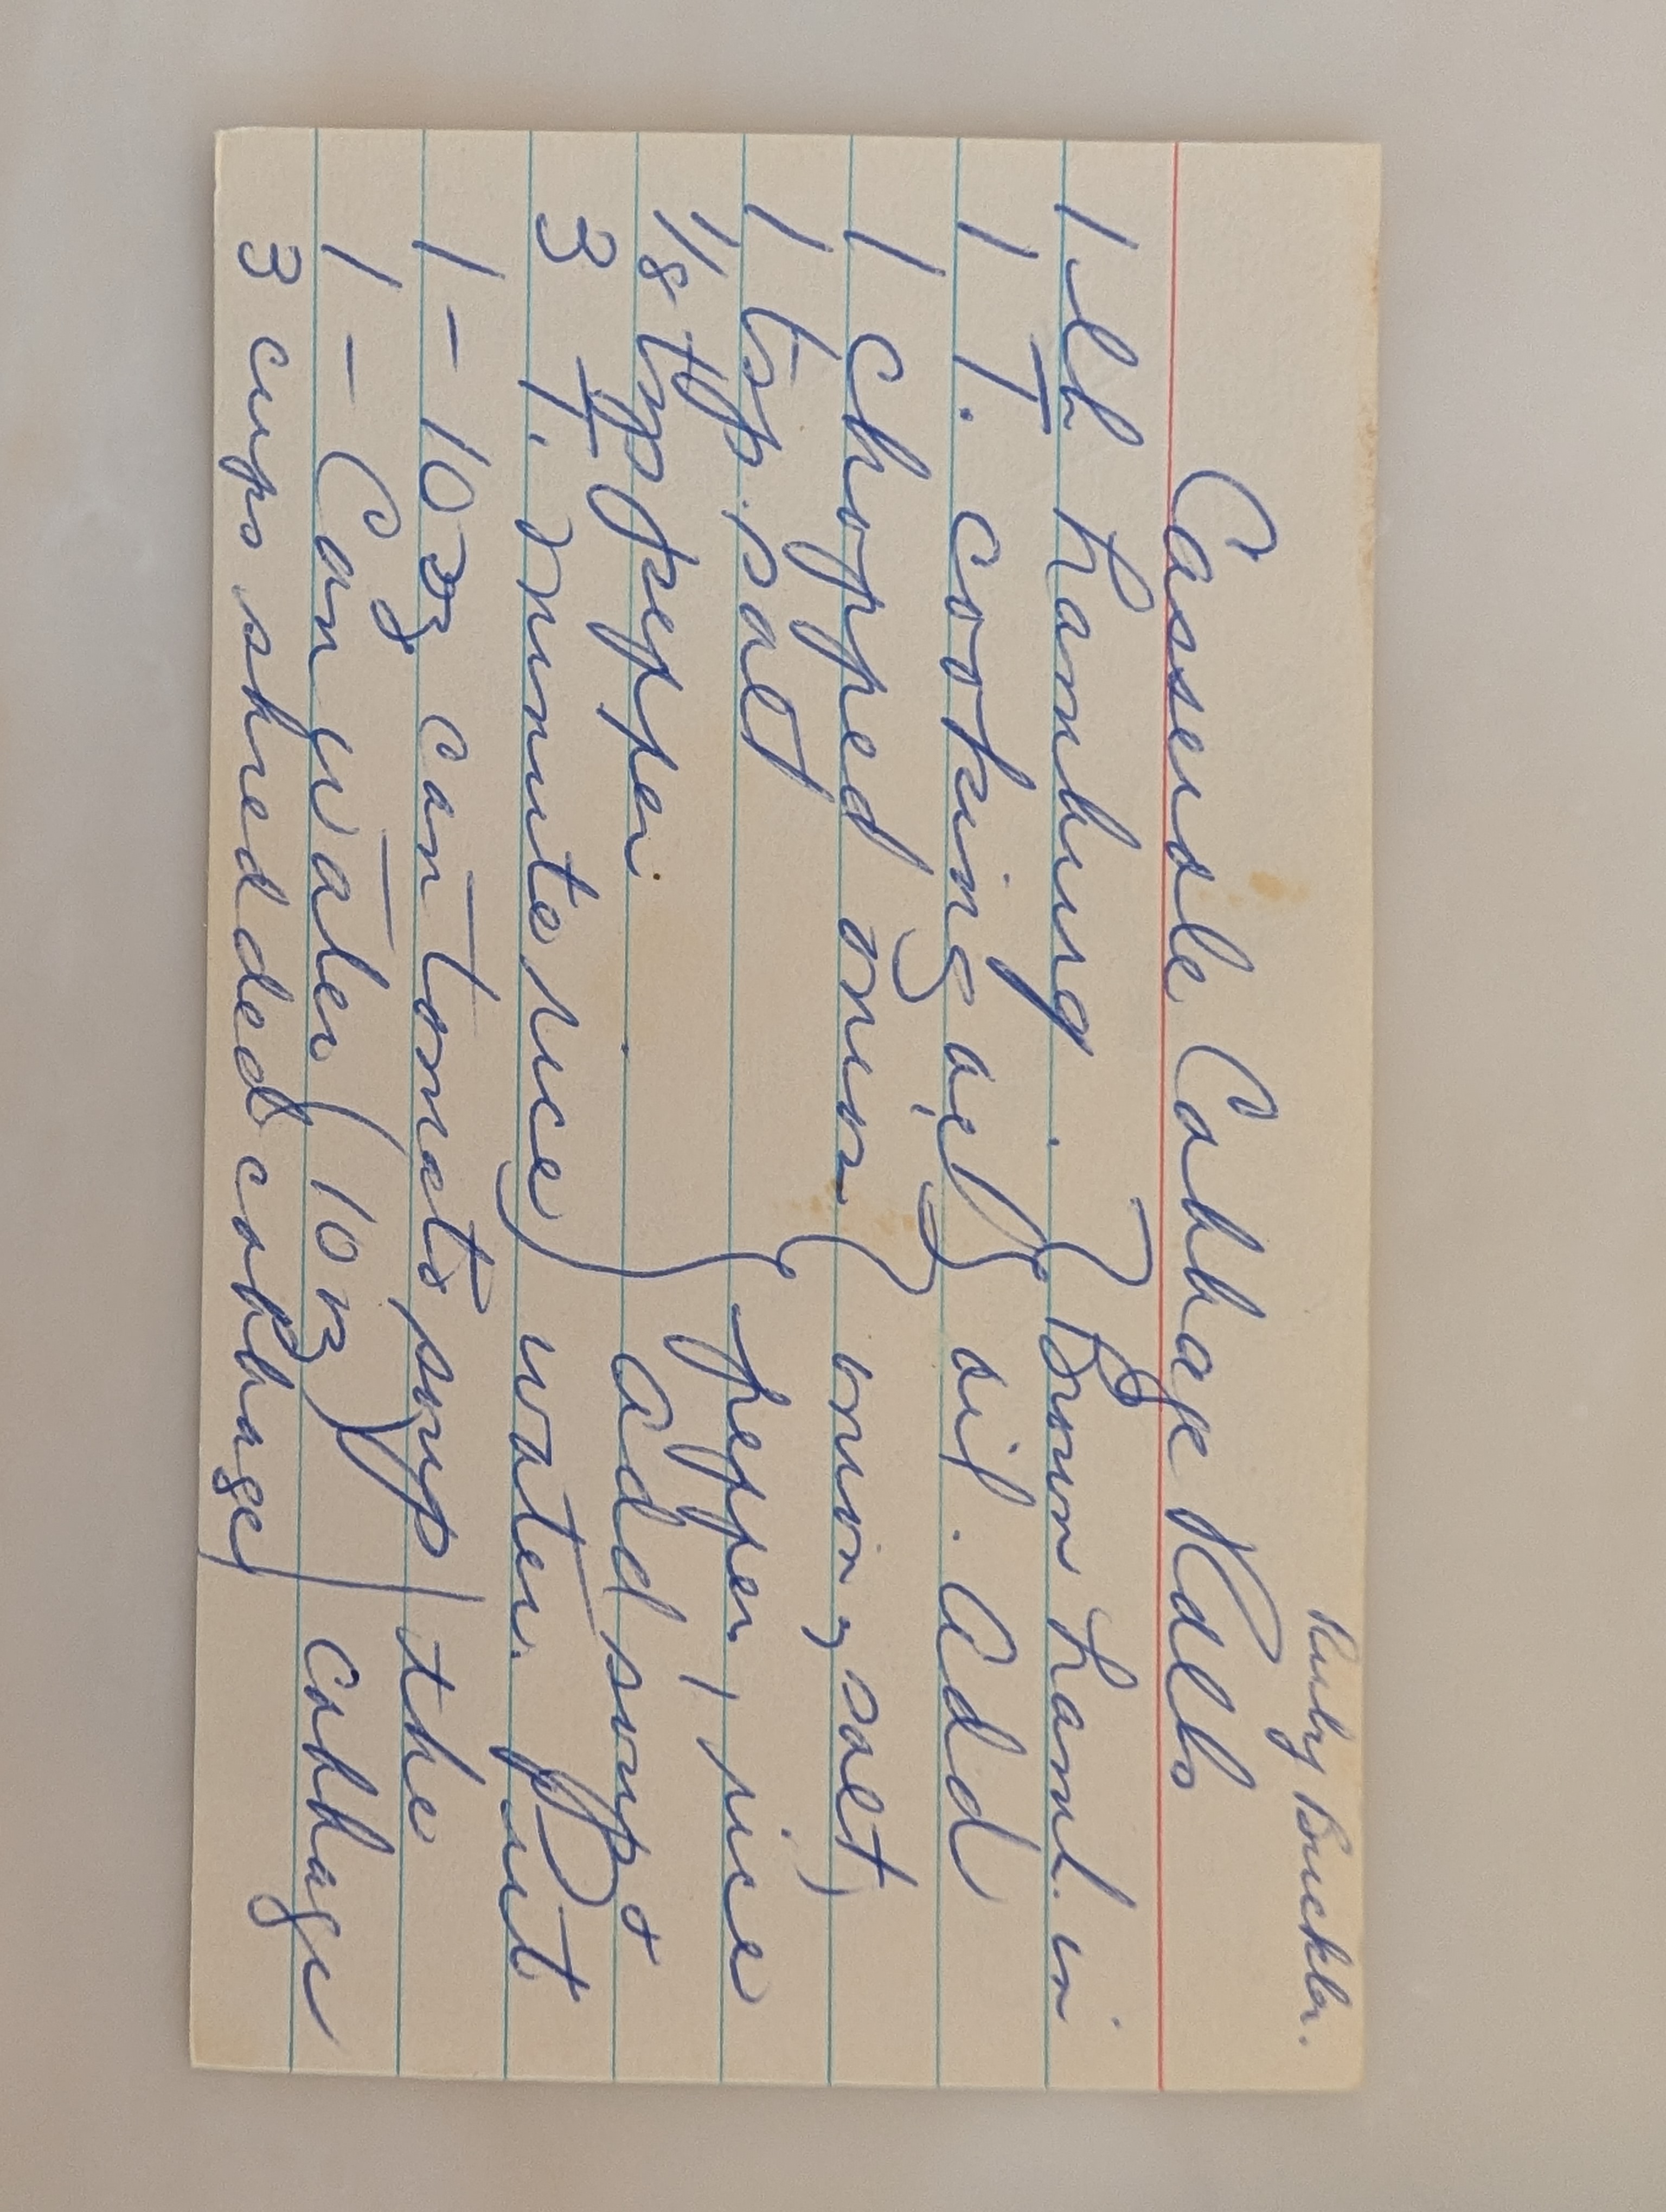 Ruby Buckler.
Casserole Cabbage Rolls
1 lb hamburg. Brown hamb. in
1 T. cooking oil oil. Add
1 chopped onion onion, salt,
1 tsp. salt pepper, rice
1/8 tsp pepper. Add soup +
3 T. minute rice water. Put
1 - 10 oz can tomato soup the
1 - Can water (10 oz) cabbage
3 cups shredded cabbage